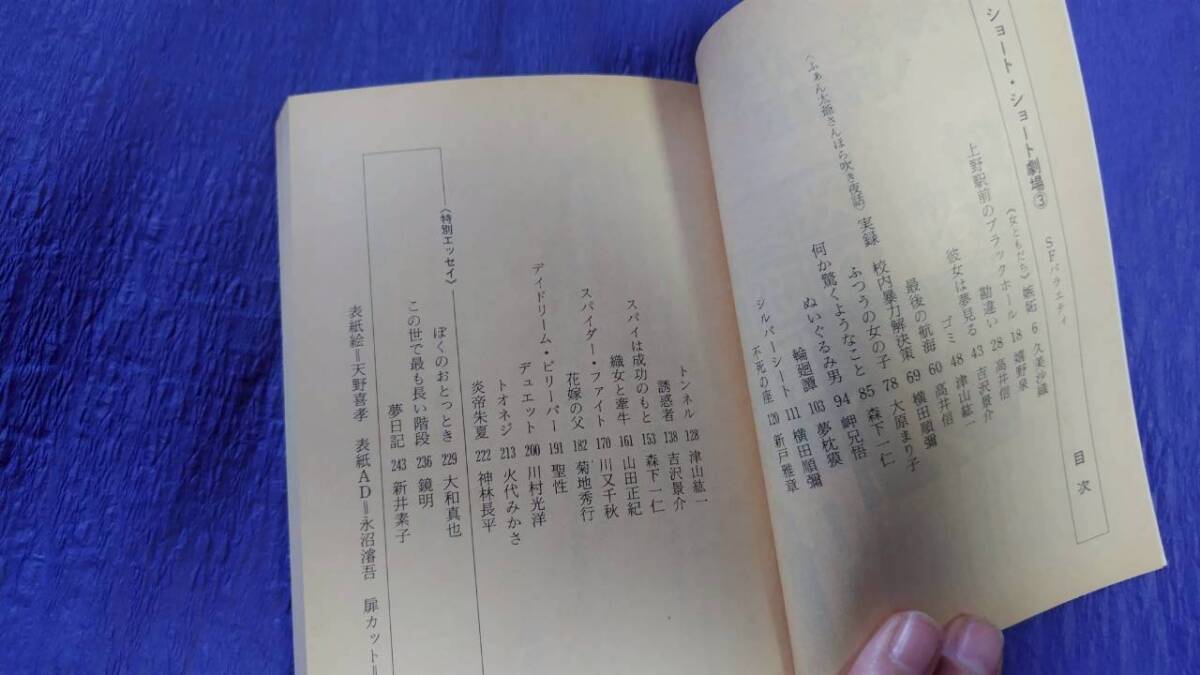 ショート・ショート劇場③
SFバラエティ
目次
《女ともだち》嫉妬 6 久美沙織
上野駅前のブラックホール 18 嬉野泉
勘違い 28 高井信
彼女は夢見る 43 吉沢景介
ゴミ 48 津山紘一
最後の航海 60 高井信
校内暴力解決策 69 横田順彌
ふつうの女の子 78 大原まり子
〈ふぁん太爺さんほら吹き夜話〉実録 何か驚くようなこと 85 森下一仁
ぬいぐるみ男 94 岬兄悟
輪廻譚 103 夢枕獏
シルバーシート 111 横田順彌
不死の座 120 新戸雅章
トンネル 128 津山紘一
誘惑者 138 吉沢景介
スパイは成功のもと 153 森下一仁
織女と牽牛 161 山田正紀
スパイダー・ファイト 170 川又千秋
花嫁の父 182 菊地秀行
デイドリーム・ビリーバー 191 聖性
デュエット 200 川村光洋
トオネジ 213 火代みかさ
炎帝朱夏 222 神林長平
《特別エッセイ》
ぼくのおとっとき 229 大和真也
この世で最も長い階段 236 鏡明
夢日記 243 新井素子
表紙絵＝天野喜孝 表紙AD＝永沼濬吾 扉カット＝